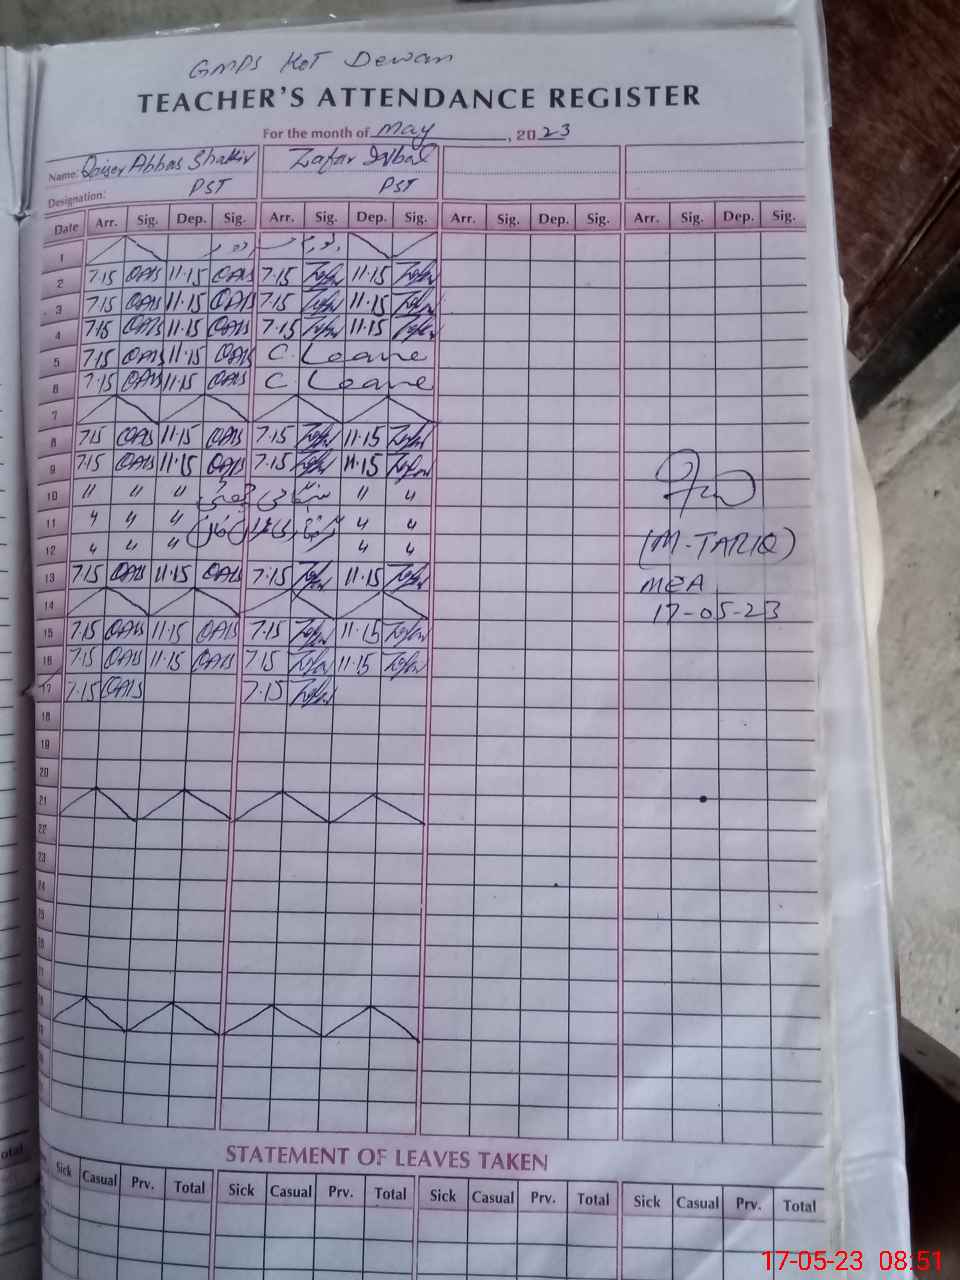 GMPS Kot Dewan
TEACHER'S ATTENDANCE REGISTER
For the month of May, 2023
Name: Qaiser Abbas Shakir Zafar Iqbal
Designation: PST PST
Date Arr. Sig. Dep. Sig. Arr. Sig. Dep. Sig. Arr. Sig. Dep. Sig. Arr. Sig. Dep. Sig.
1
2 7.15 QAIS 11.15 QAIS 7.15 Zafar 11.15 Zafar
3 7.15 QAIS 11.15 QAIS 7.15 Zafar 11.15 Zafar
4 7.15 QAIS 11.15 QAIS 7.15 Zafar 11.15 Zafar
5 7.15 QAIS 11.15 QAIS C. Leave
6 7.15 QAIS 11.15 QAIS C. Leave
7
8 7.15 QAIS 11.15 QAIS 7.15 Zafar 11.15 Zafar
9 7.15 QAIS 11.15 QAIS 7.15 Zafar 11.15 Zafar
10 " " " " "
11 " " " " "
12 " " " " "
13 7.15 QAIS 11.15 QAIS 7.15 Zafar 11.15 Zafar
14
15 7.15 QAIS 11.15 QAIS 7.15 Zafar 11.15 Zafar
16 7.15 QAIS 11.15 QAIS 7.15 Zafar 11.15 Zafar
17 7.15 QAIS 7.15 Zafar
18
19
20
21
22
23
24
25
26
27
28
29
(M-TARIQ)
MEA
17-05-23
STATEMENT OF LEAVES TAKEN
Sick Casual Prv. Total Sick Casual Prv. Total Sick Casual Prv. Total Sick Casual Prv. Total
17-05-23 08:51